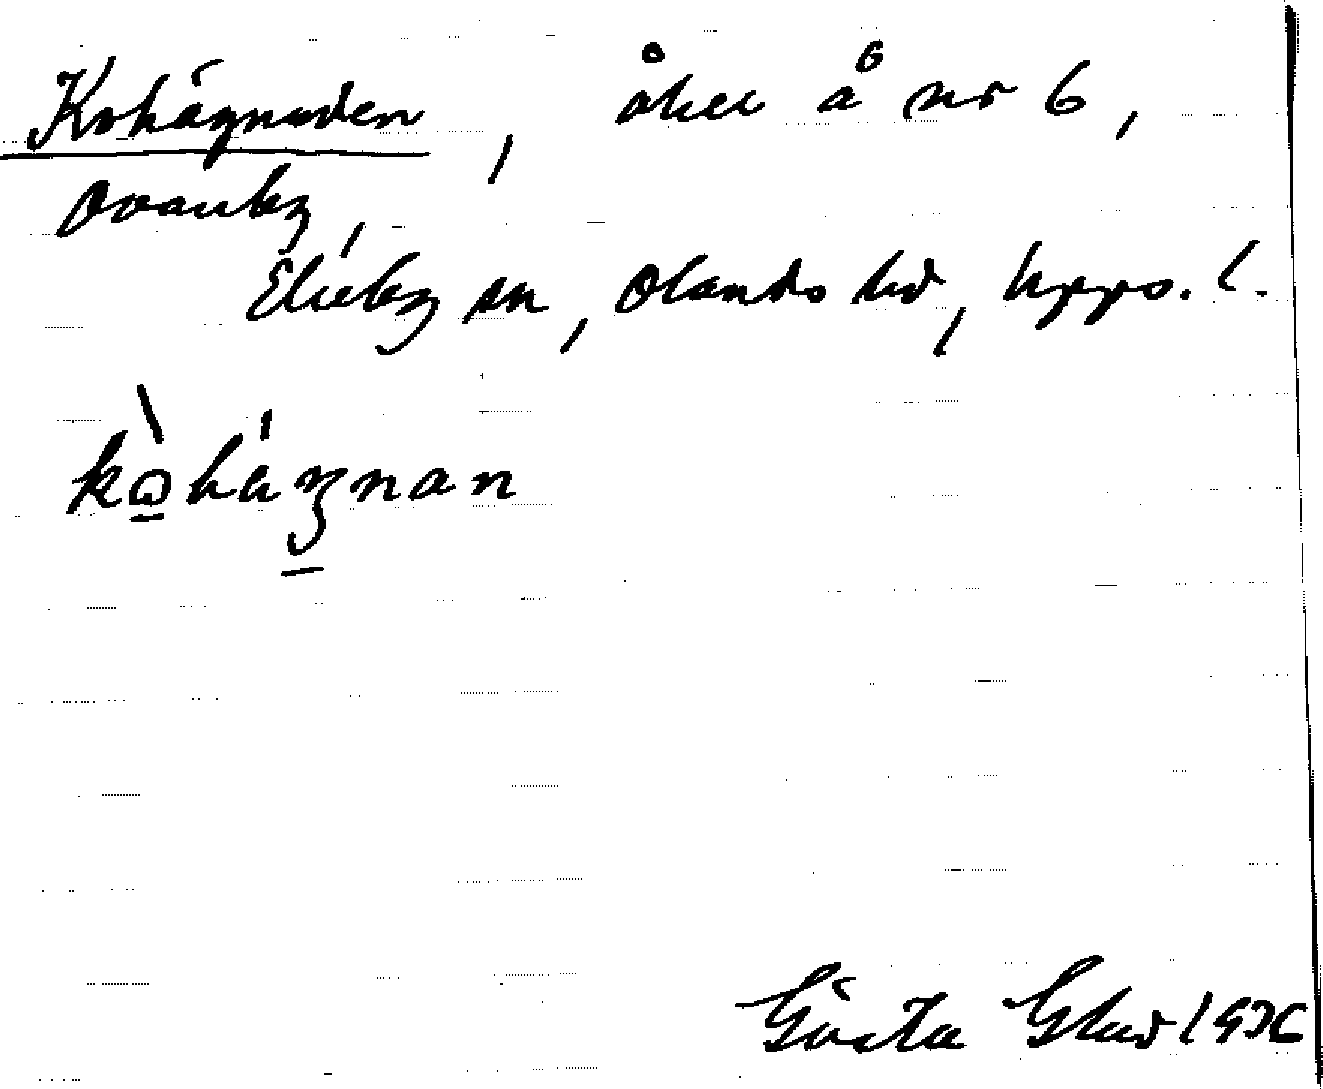 Kohägnaden, åker å nr 6,
Ovanby,
Ekeby sn, Olands hd, Upps. l.
kòhàgnan
Gösta 1936